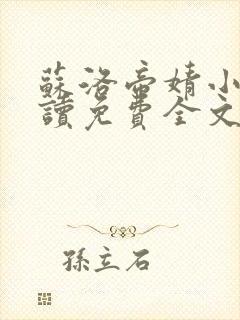 蘇洛帝婧小
讀免費全文
孫立石